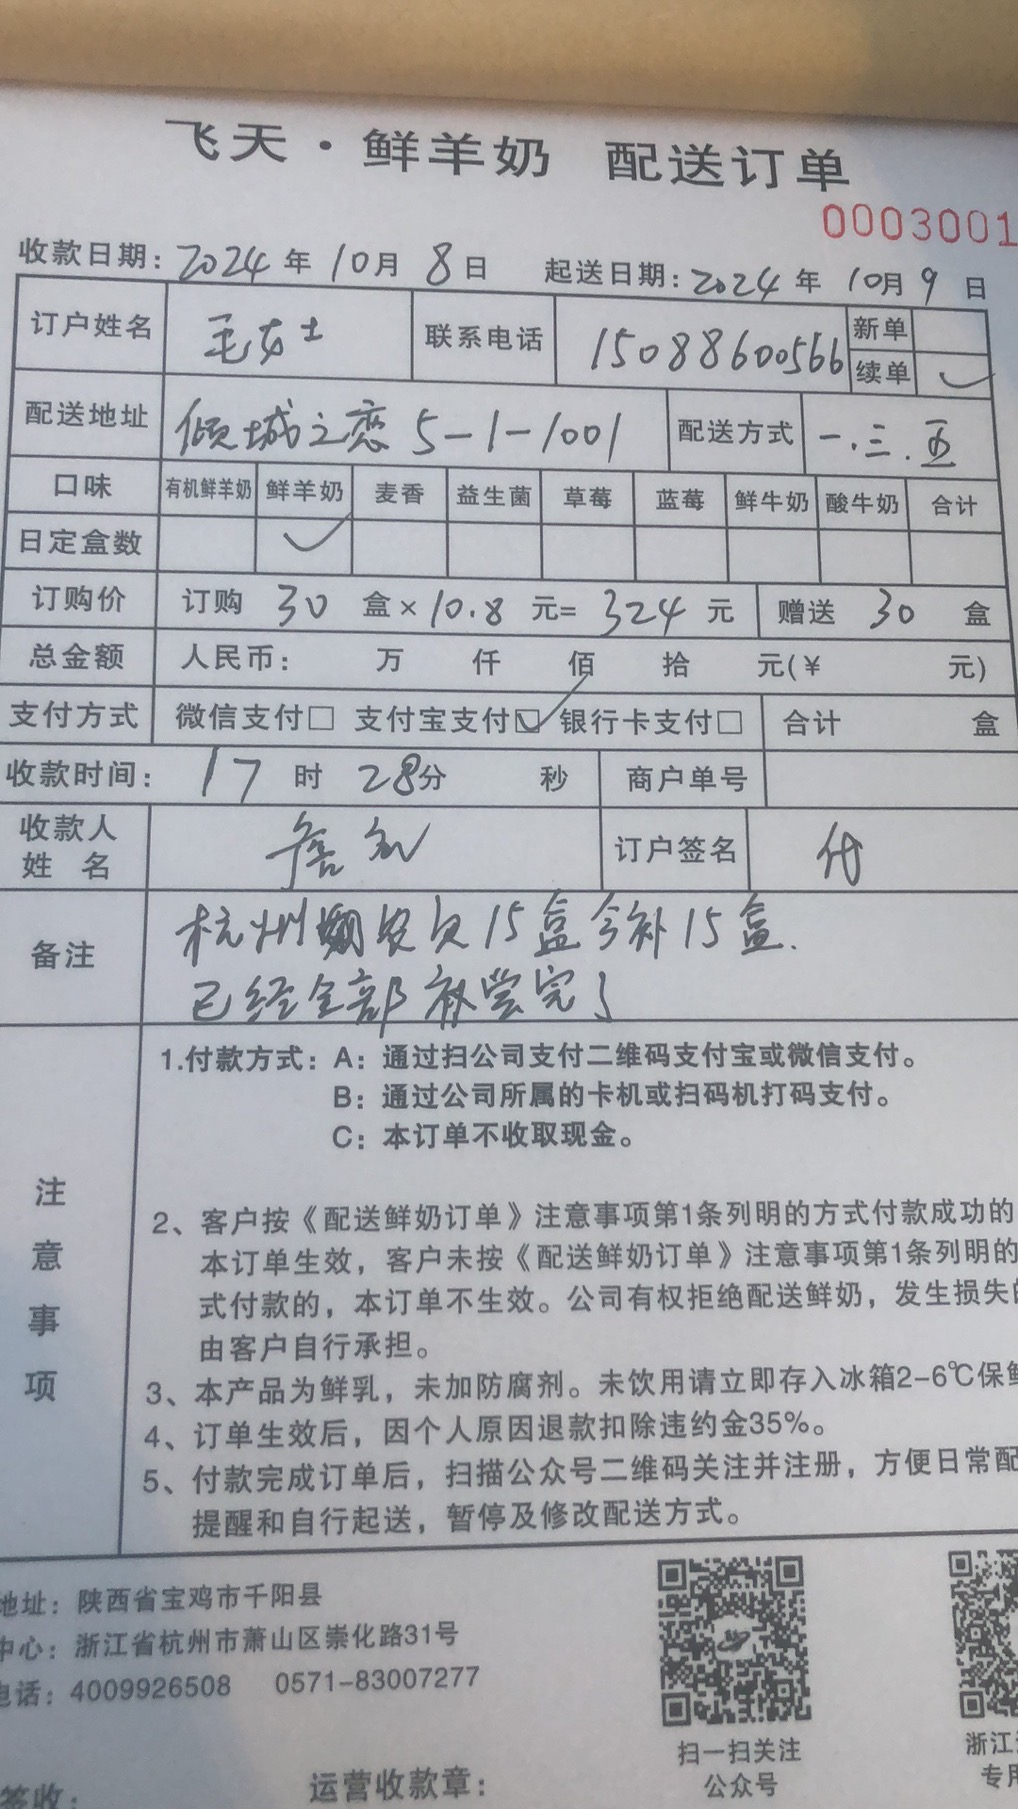 飞天·鲜羊奶 配送订单
0003001
收款日期：2024年10月8日 起送日期：2024年10月9日
订户姓名 毛女士 联系电话 15088600566 新单
续单 ✓
配送地址 倾城之恋5-1-1001 配送方式 一.三.五
口味 有机鲜羊奶 鲜羊奶 麦香 益生菌 草莓 蓝莓 鲜牛奶 酸牛奶 合计
日定盒数 ✓
订购价 订购 30 盒×10.8元=324元 赠送 30 盒
总金额 人民币： 万 仟 佰 拾 元(¥ 元)
支付方式 微信支付□ 支付宝支付☑ 银行卡支付□ 合计 盒
收款时间： 17时28分 秒 商户单号
收款人
姓 名 订户签名 付
备注 杭州 欠15盒今补15盒.
已经全部补尝完了
注意事项
1.付款方式：A：通过扫公司支付二维码支付宝或微信支付。
B：通过公司所属的卡机或扫码机打码支付。
C：本订单不收取现金。
2、客户按《配送鲜奶订单》注意事项第1条列明的方式付款成功的
本订单生效，客户未按《配送鲜奶订单》注意事项第1条列明的
式付款的，本订单不生效。公司有权拒绝配送鲜奶，发生损失
由客户自行承担。
3、本产品为鲜乳，未加防腐剂。未饮用请立即存入冰箱2-6℃保
4、订单生效后，因个人原因退款扣除违约金35%。
5、付款完成订单后，扫描公众号二维码关注并注册，方便日常配
提醒和自行起送，暂停及修改配送方式。
地址：陕西省宝鸡市千阳县
中心：浙江省杭州市萧山区崇化路31号
电话：4009926508 0571-83007277
扫一扫关注
公众号
浙江
专用
签收： 运营收款章：